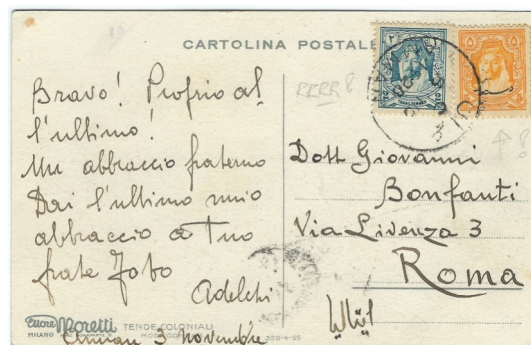 CARTOLINA POSTALE
Bravo! Proprio al
l'ultimo!
Un abbraccio fraterno
Dai l'ultimo mio
abbraccio a Tuo
frate Tobo
Adelchi
Amman 3 novembre
Dott Giovanni
Bonfanti
Via Livenza 3
Roma
ايتاليا
Ettore Moretti
MILANO
TENDE COLONIALI